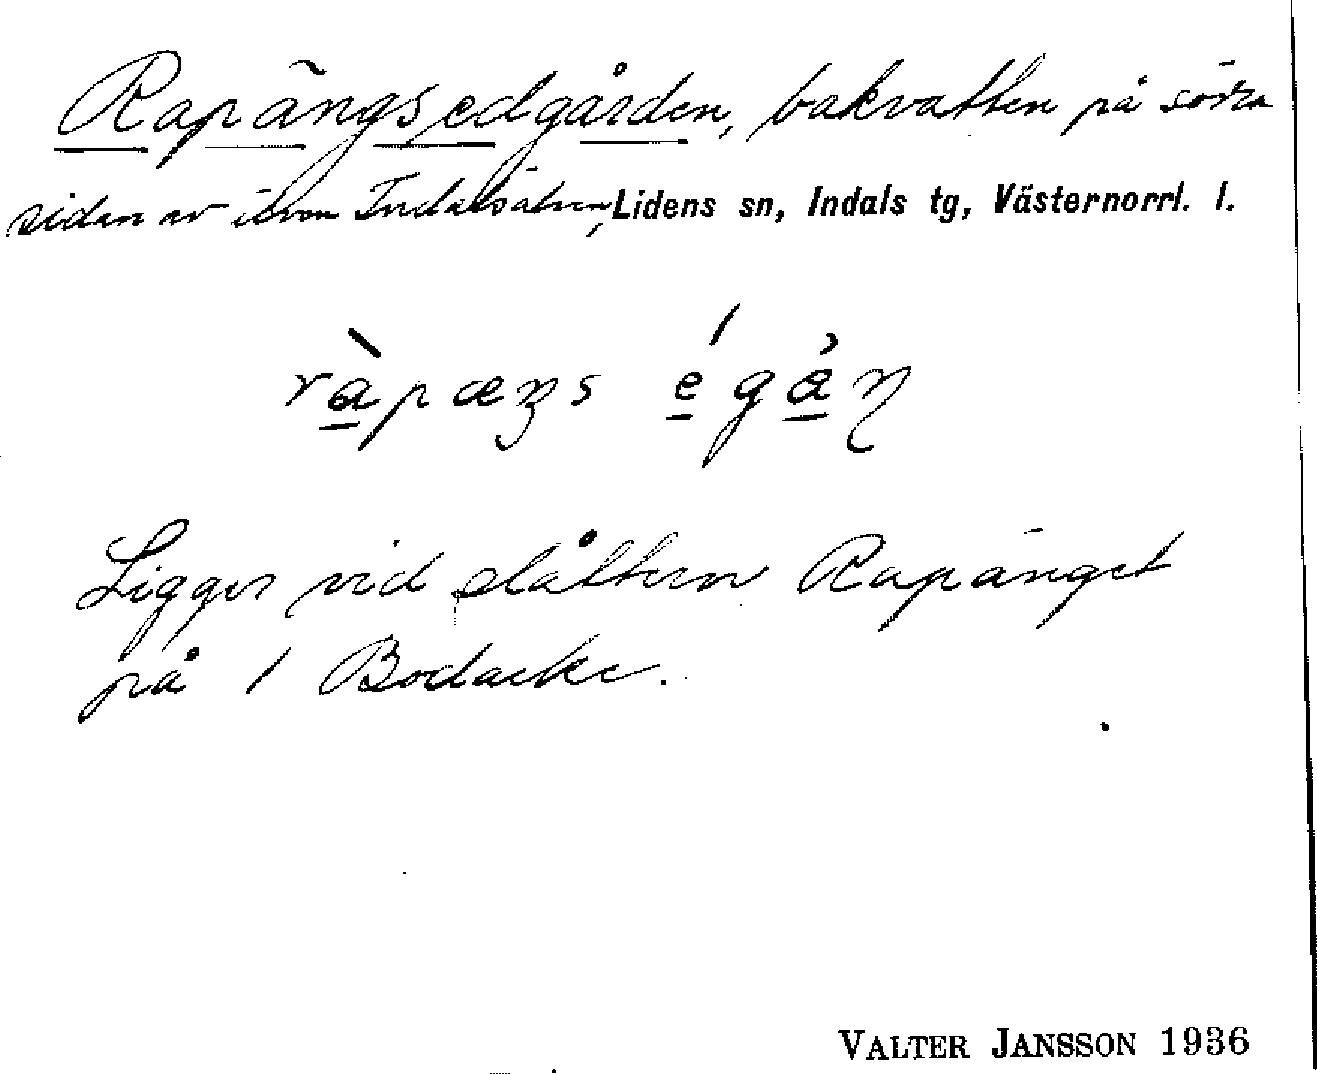 Rapängsedgården, bakvatten på södra
siden av älven Indalsälven, Lidens sn, Indals tg, Västernorrl. l.
ràpæŋs égån
Ligger vid slåttern Rapänget
på 1 Bodacke.
VALTER JANSSON 1936